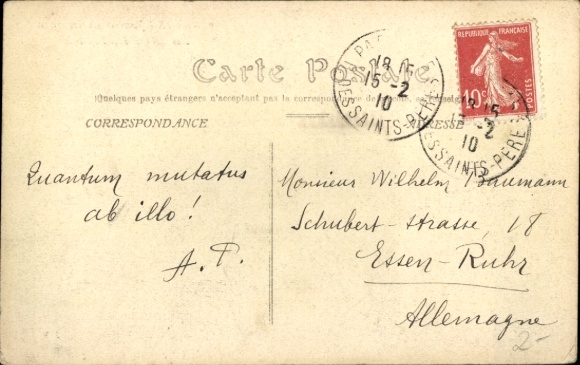 Carte Postale
Quelques pays étrangers n'acceptent pas la correspondance
CORRESPONDANCE
ADRESSE
Quantum mutatus
ab illo!
A. P.
Monsieur Wilhelm Baumann
Schubert-strasse, 18
Essen-Ruhr
Allemagne
REPUBLIQUE FRANÇAISE
10c
POSTES
18 15
15 -2
10
DES SAINTS-PERES
18 15
15 -2
10
DES SAINTS-PERES
2-